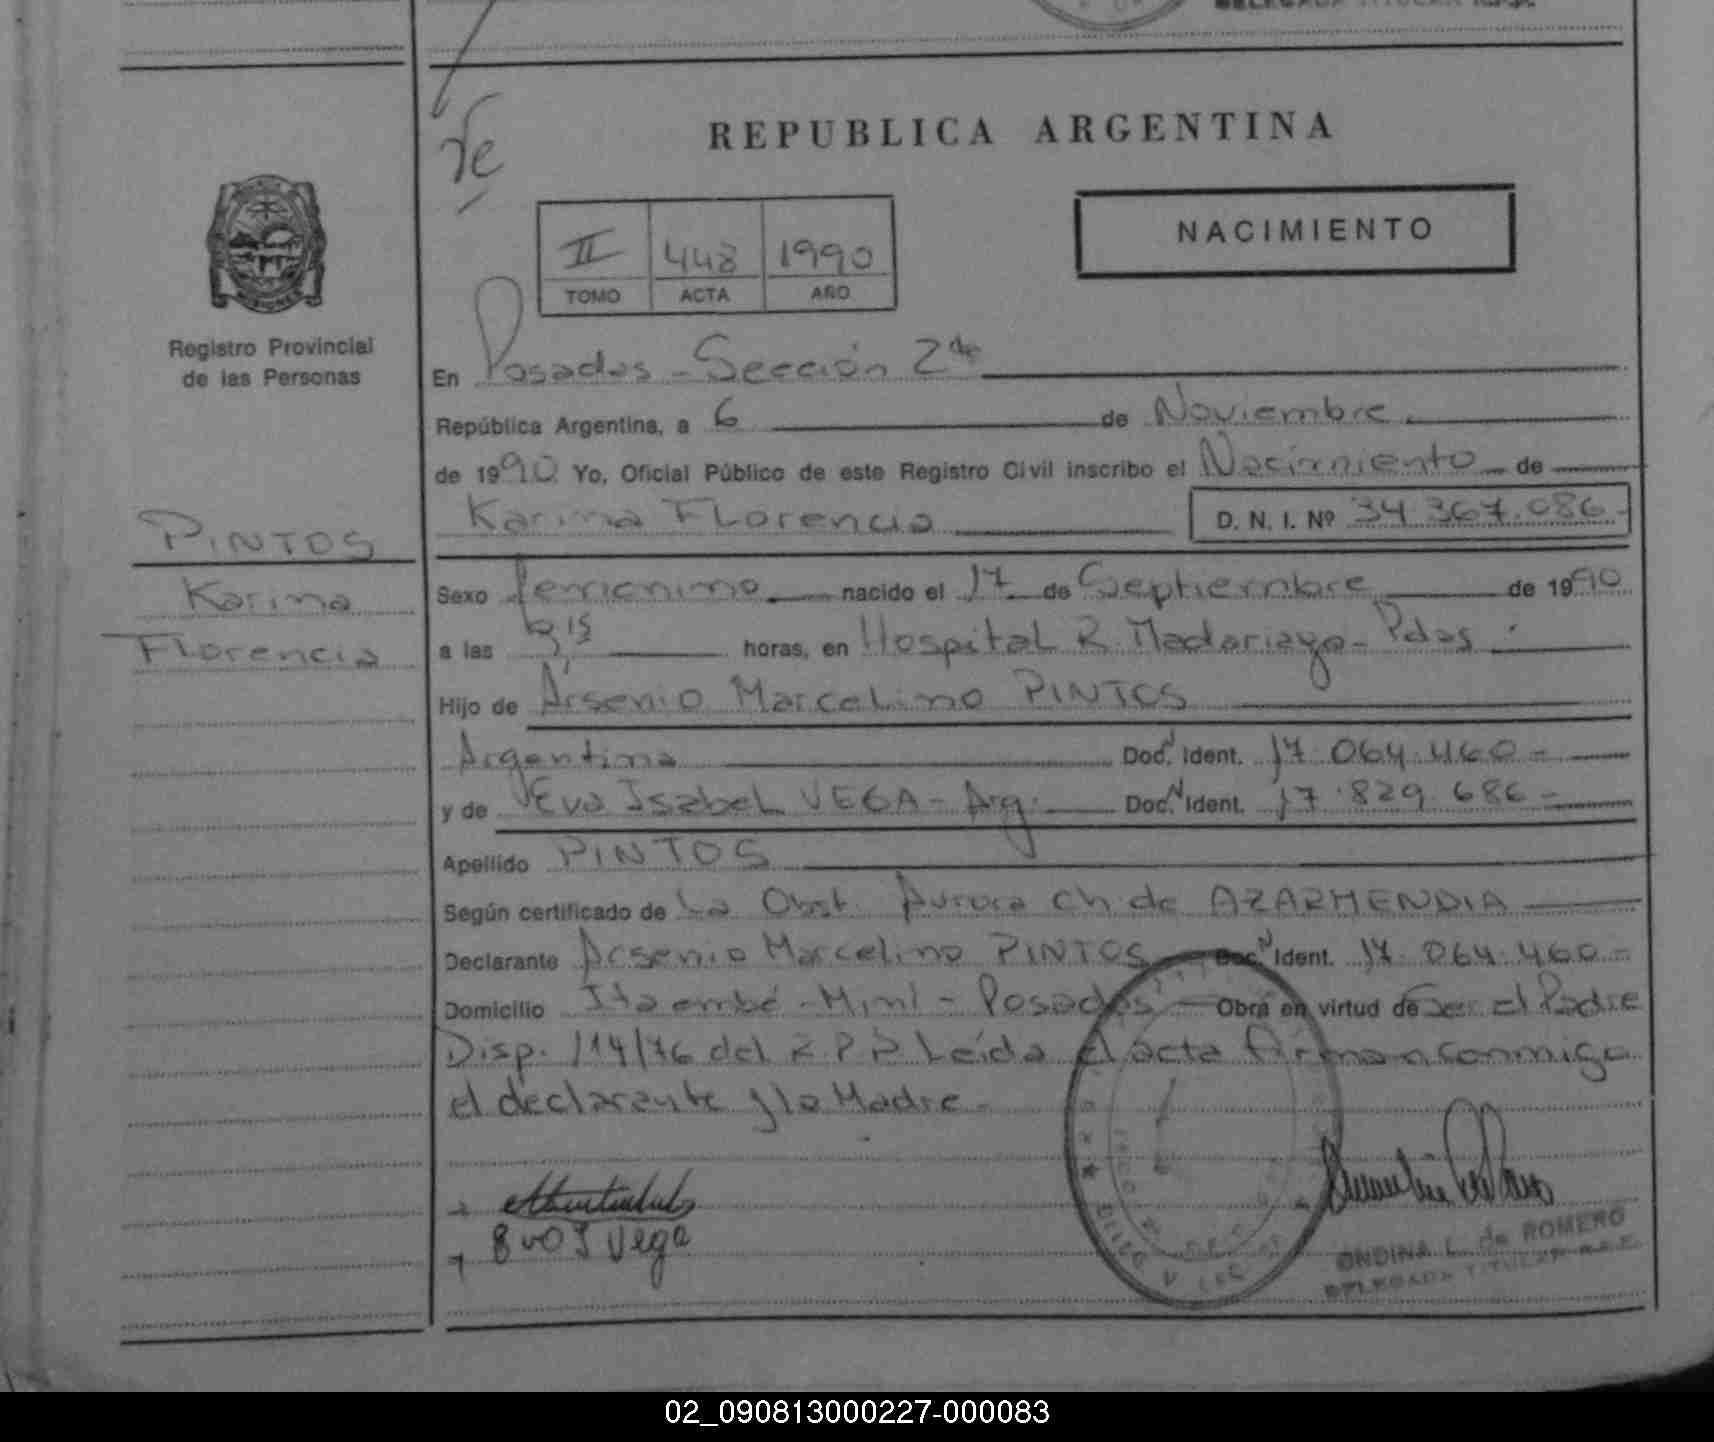 REPUBLICA ARGENTINA
NACIMIENTO
II 448 1990
TOMO ACTA AÑO
MISIONES
Registro Provincial
de las Personas
En Posadas - Sección 2da
República Argentina, a 6 de Noviembre
de 1990 Yo, Oficial Público de este Registro Civil inscribo el Nacimiento de
Karina Florencia D. N. I. Nº 34.367.086-
PINTOS
Karina
Florencia
Sexo femenino nacido el 17 de Septiembre de 1990
a las horas, en Hospital R. Madariaga - Pdas
Hijo de Arsenio Marcelino PINTOS
Argentina Doc. Ident. 17.064.460-
y de Eva Isabel VEGA - Arg. Doc. Ident. 17.829.686-
Apellido PINTOS
Según certificado de La Obst. Aurora Ch. de AZARMENDIA
Declarante Arsenio Marcelino PINTOS Doc. Ident. 17.064.460-
Domicilio Itaembé - Miní - Posadas Obra en virtud de Ser el Padre
Disp. 114/76 del R.P.P. Leída el acta firman conmigo
el declarante y la Madre -
Eva I Vega
ONDINA L. de ROMERO
DELEGADA TITULAR
02_090813000227-000083